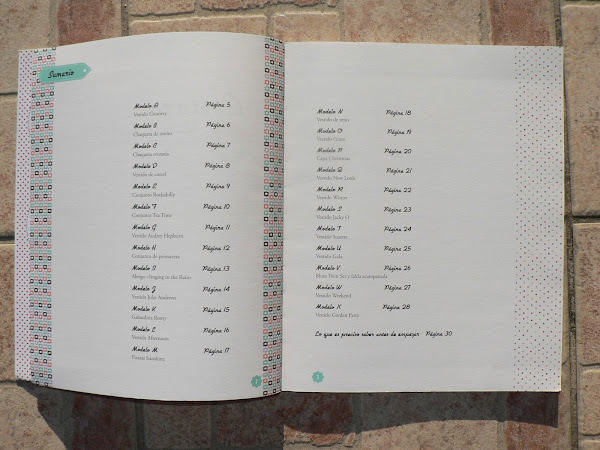 Sumario
Modelo A Página 5
Vestido Country
Modelo B Página 6
Chaqueta de otoño
Modelo C Página 7
Chaqueta cruzada
Modelo D Página 8
Vestido de cóctel
Modelo E Página 9
Conjunto Rockabilly
Modelo F Página 10
Conjunto Tea Time
Modelo G Página 11
Vestido Audrey Hepburn
Modelo H Página 12
Conjunto de primavera
Modelo I Página 13
Abrigo singing in the Rain
Modelo J Página 14
Vestido Julie Andrews
Modelo K Página 15
Gabardina Rosey
Modelo L Página 16
Vestido Afternoon
Modelo M Página 17
Sunshine
2
Modelo N Página 18
Vestido de
Modelo O Página 19
Vestido
Modelo P Página 20
Capa Christmas
Modelo Q Página 21
Vestido New Look
Modelo R Página 22
Vestido Winter
Modelo S Página 23
Vestido Jacky O
Modelo T Página 24
Vestido
Modelo U Página 25
Vestido Gala
Modelo V Página 26
Blusa Twin Set y falda acampanada
Modelo W Página 27
Vestido Weekend
Modelo X Página 28
Vestido Garden Party
Lo que es preciso saber antes de empezar Página 30
3